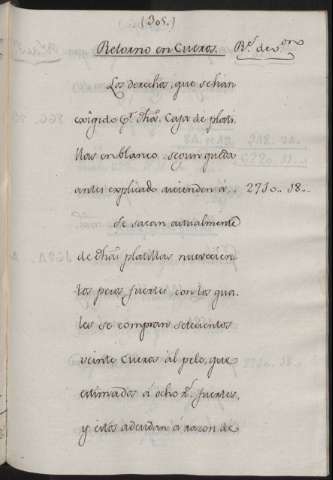 (305.)
Retorno en Cueros. R.ˢ de v.ᵒⁿ
Los derechos, que se han
exîgido p.ʳ dhâ. Caja de plati-
llas en blanco segun queda
antes explicado ascienden á.. 2750.. 18..
Se sacan actualmente
de dhâs platillas nuevecien-
tos pesos fuertes con los qua-
les se compran setecientos
veinte Cueros âl pelo, que
estimados á ocho r.ˢ fuertes,
y estos adeudan á razon de